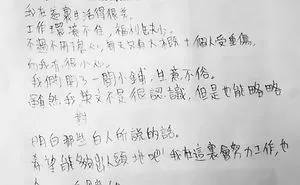 我在這裏生活得很好。
工作環境不佳，福利也少。
不過不用擔心，每天只有大約十個人受重傷，
而我亦很小心。
我們開了一間小鋪，生意不俗。
雖然我英文不是很認識，但是也能略略
對
明白那些白人所說的話。
希望能夠出人頭地吧！我在這裏會努力工作，也